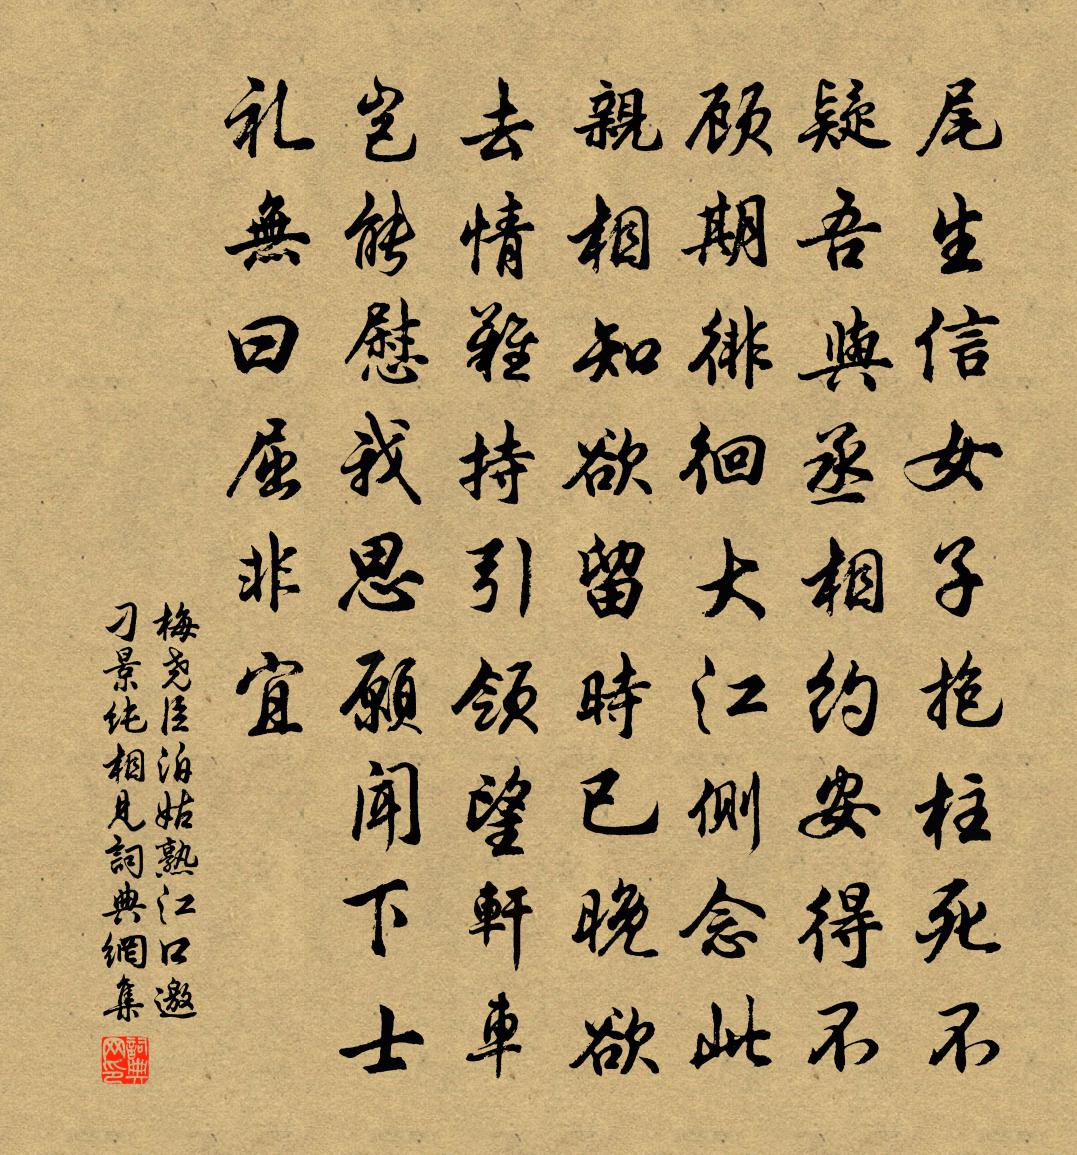 尾生信女子抱柱死不
疑吾與丞相約安得不
顾期徘徊大江側念此
親相知欲留時已晚欲
去情難持引領望軒車
岂能慰我思願聞下士
礼無曰屈非宜
梅尧臣泊姑熟江口邀
刁景纯相見詞典網集
詞典网印